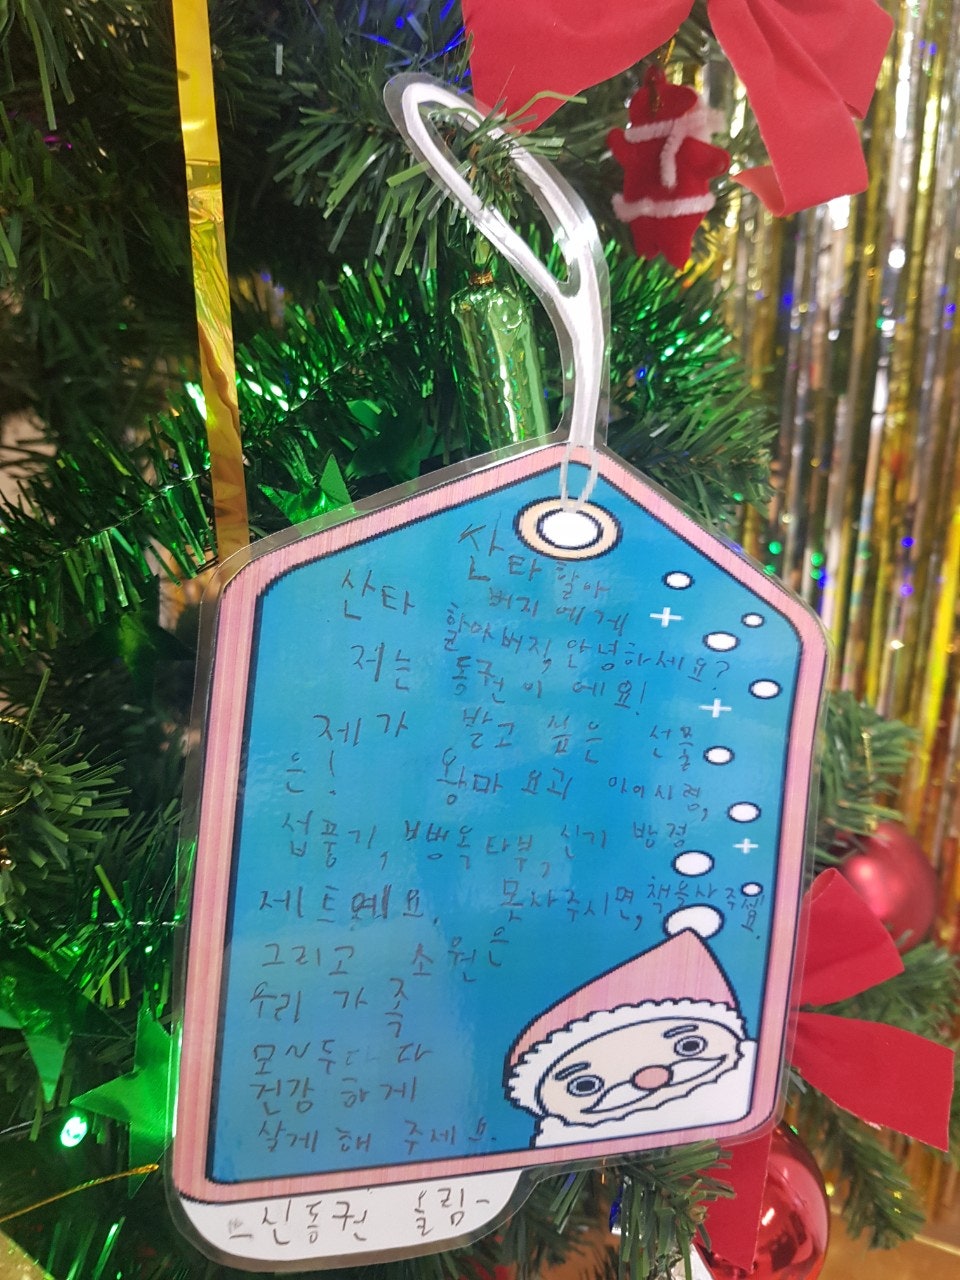 산타할아
버지에게
산타 할아버지, 안녕하세요?
저는 동권이에요!
제가 받고 싶은 선물
은! 왕마요고 아이시령,
섭풍기, 뿅옥타부, 신기 밥경
제트예요. 못사주시면, 책을사주세요.
그리고 소원은
우리 가족
모두 다
건강하게
살게 해 주세요.
-신동권 올림-